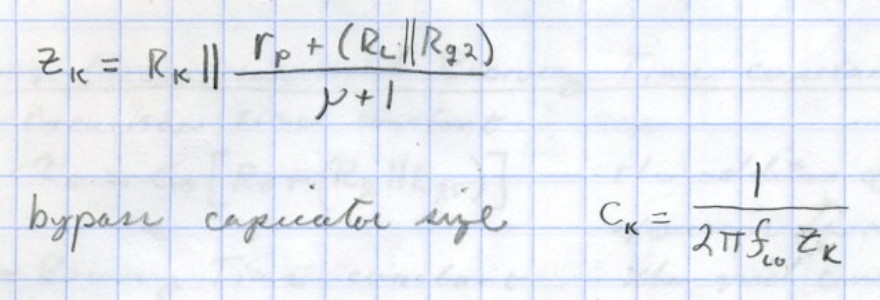 Z_K = R_K || (r_p + (R_L || R_g2)) / (μ + 1)
bypass capacitor size C_K = 1 / (2π f_co Z_K)